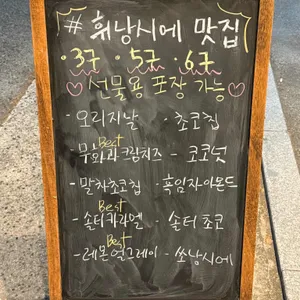 # 휘낭시에 맛집
·3구 ·5구 ·6구
♡선물용 포장 가능♡
- 오리지날 - 초코칩
Best
- 무화과크림치즈 - 코코넛
- 말차초코칩 - 흑임자아몬드
Best
- 솔티카라멜 - 솔티초코
Best
- 레몬얼그레이 - 쏘낭시에